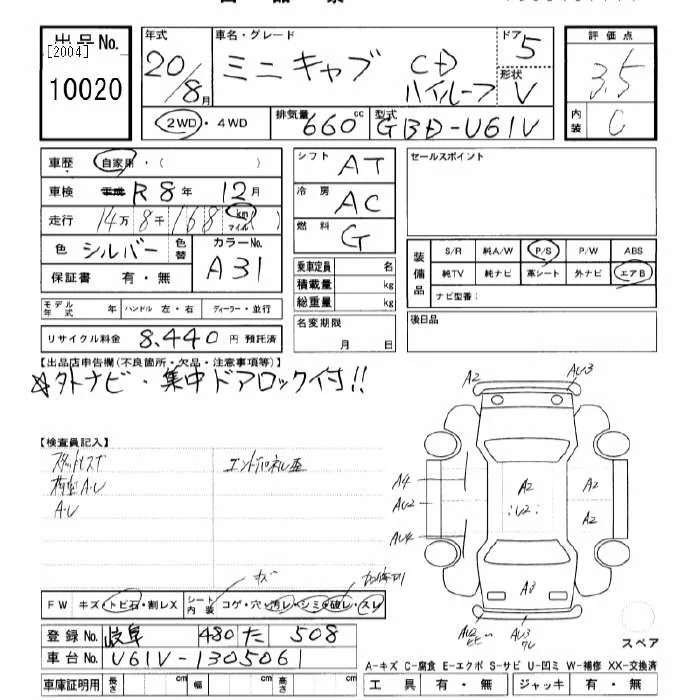 出品No.
[2004]
10020
年式
20/8月
車名・グレード
ミニキャブ CD
ハイルーフ
ドア 5
形状 V
評価点
3.5
内装 C
2WD・4WD
排気量 660 cc
型式 GBD-U61V
車歴 自家用・( )
車検 R8年 12月
走行 14万8千168 km マイル
色 シルバー 色替
カラーNo. A31
保証書 有・無
シフト AT
冷房 AC
燃料 G
セールスポイント
装備品
S/R 純A/W P/S P/W ABS
純TV 純ナビ 革シート 外ナビ エアB
ナビ型番：
乗車定員 名
積載量 kg
総重量 kg
モデル年式 年 ハンドル 左・右 ディーラー・並行
リサイクル料金 8,440 円 預託済
名変期限 月 日
後日品
【出品店申告欄(不良箇所・欠品・注意事項等)】
☆外ナビ・集中ドアロック付!!
【検査員記入】
A・U
A・U
A2 AU3
A4
AU2
AU4
A2
U2
A2
A2
A3
AU3
FW キズ・トビ石・割レX
シート内装 コゲ・穴・汚レ・シミ・破レ・スレ
登録No. 岐阜 480 た 508
車台No. U61V-1305061
スペア
A-キズ C-腐食 E-エクボ S-サビ U-凹ミ W-補修 XX-交換済
車庫証明用 長さ cm 幅 cm 高さ cm
工具 有・無 ジャッキ 有・無